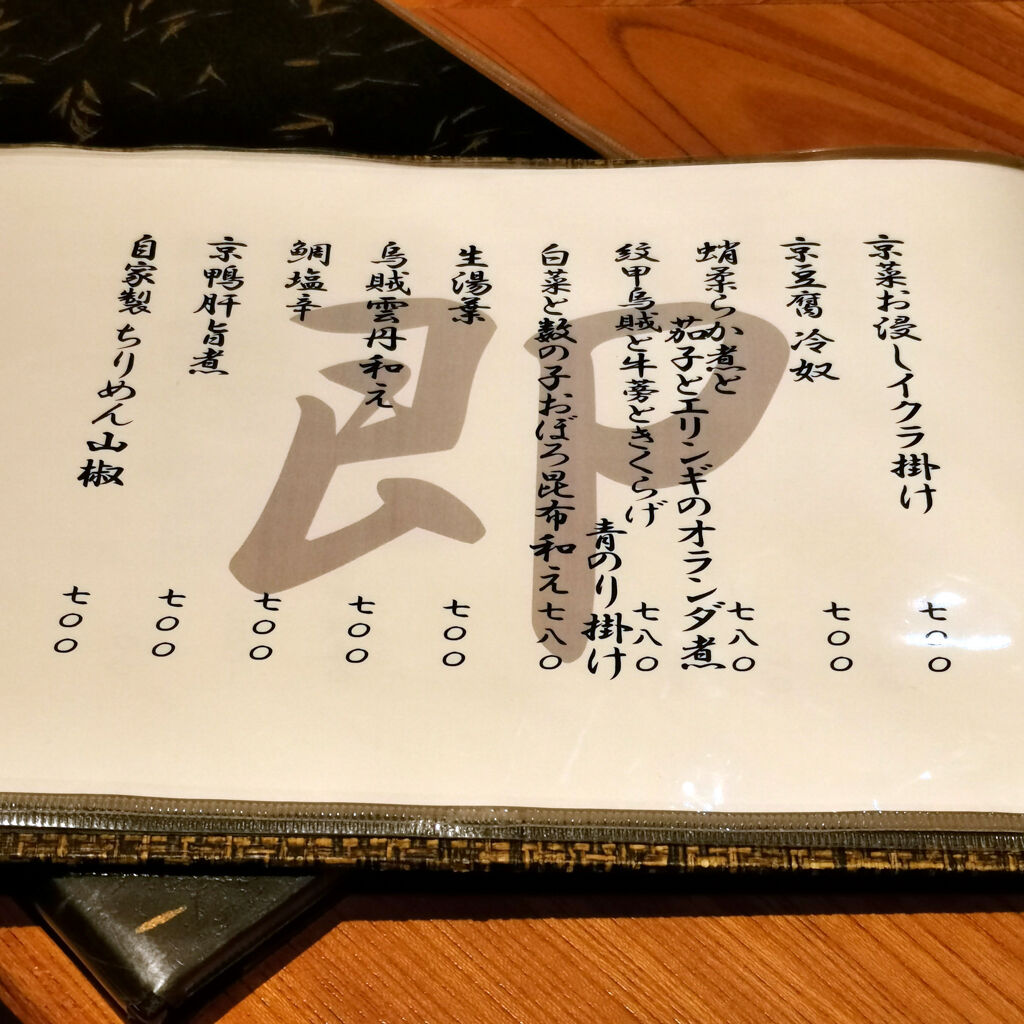 即
京菜お浸しイクラ掛け 七〇〇
京豆腐 冷奴 七〇〇
蛸柔らか煮と
茄子とエリンギのオランダ煮 七八〇
紋甲烏賊と牛蒡ときくらげ
青のり掛け 七八〇
白菜と数の子おぼろ昆布和え 七八〇
生湯葉 七〇〇
烏賊雲丹和え 七〇〇
鯛塩辛 七〇〇
京鴨肝旨煮 七〇〇
自家製ちりめん山椒 七〇〇